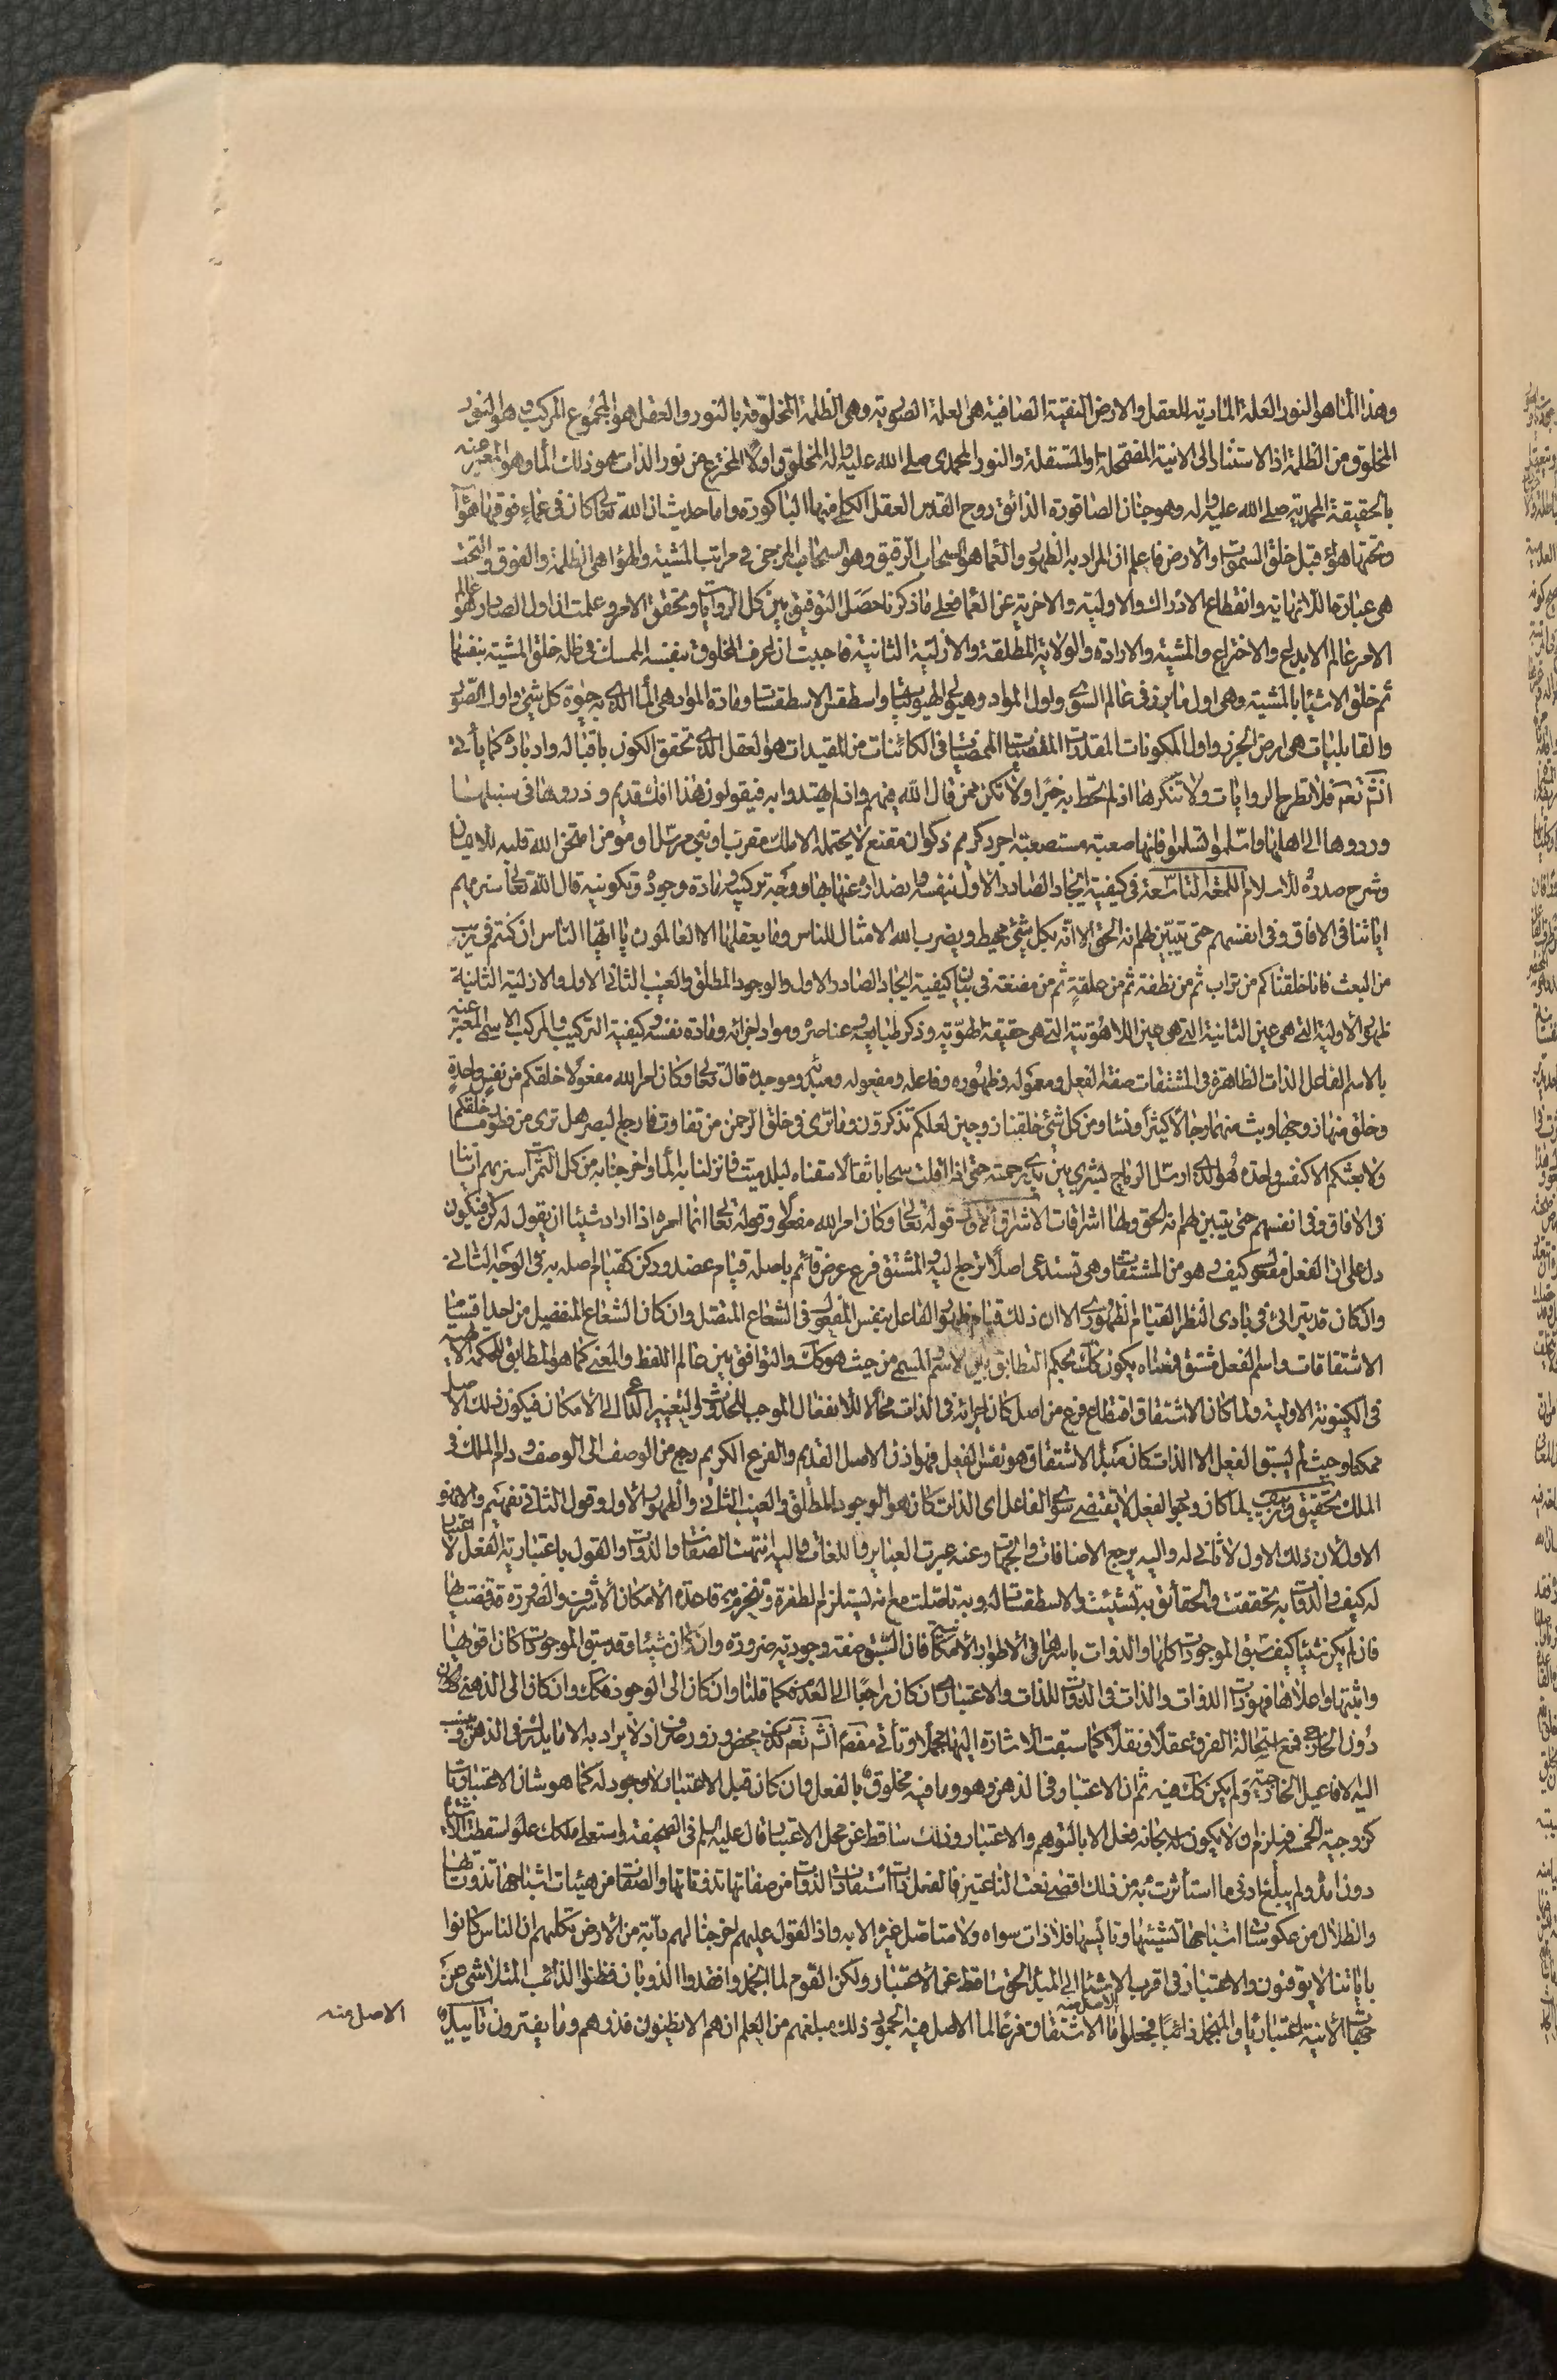 وهذا الماء هو النور العلة المادية للعقل والارض النقية الصافية هى العلة الصورية وهى الظلمة المخلوقة بالنور والعقل هو المجموع المركب وهو النور
المخلوق من الظلمة اذ الاستناد الى الانية المضمحلة او المستقلة والنور المحمدى صلى الله عليه واله المخلوق اولا المخترع من نور الذات هو ذلك الماء وهو المعبر عنه
بالحقيقة المحمدية صلى الله عليه واله وهو جنان الصاقورة الذائق روح القدس العقل الكلى منها الباكورة واما حديث ان الله تعالى كان فى عماء فوقها هواء
وتحتها هواء قبل خلق السموات والارض فاعلم ان المراد به الظهور والعماء هو السحاب الرقيق وهو السحاب المزجى فى مراتب المشية والهواء هى الظلمة والفوق والتحت
هى عبارة اللانهاية وانقطاع الادراك والاولية والاخرية عن العماء فعلى ما ذكرنا حصل التوفيق بين كل الروايات وتحقق الامر وعلمت ان اول الصادر هو عالم
الامر عالم الابداع والاختراع والمشية والارادة والولاية المطلقة والازلية الثانية فاحببت ان اعرف المخلوق بنفسه الممسك فى ظله خلق المشية بنفسها
ثم خلق الاشياء بالمشية وهى اول ما برز فى عالم السوى واول المواد وهيولى الهيوليات واسطقس الاسطقسات ومادة المواد هى الماء الذى به حيوة كل شئ واول الصور
والقابليات هى ارض الجرز واول المكونات المقدرات المقضيات الممضيات فى الكائنات من المقيدات هو العقل الذى تحقق الكون باقباله وادباره كما يأتى
انشاء الله تعالى فلا تطرح الروايات ولا تنكرها اذ لم تحط به خبرا ولا تكن ممن قال الله فيهم واذ لم يهتدوا به فيقولون هذا افك قديم وذروها فى سنبلها
وردوها الى اهلها وسلموا تسلموا فانها صعبة مستصعبة اجرد كريم ذكوان مقنع لا يحتمله الا ملك مقرب او نبى مرسل او مؤمن امتحن الله قلبه للايمان
وشرح صدره للاسلام اللمعة التاسعة فى كيفية ايجاد الصادر الاول بنفسه وصدوره عنها بها ووجه تركيبه ومادة وجوده وتكوينه قال الله تعالى سنريهم
اياتنا فى الافاق وفى انفسهم حتى يتبين لهم انه الحق الا انه بكل شئ محيط ويضرب الله الامثال للناس وما يعقلها الا العالمون يا ايها الناس ان كنتم فى ريب
من البعث فانا خلقناكم من تراب ثم من نطفة ثم من علقة ثم من مضغة فى بيان كيفية ايجاد الصادر الاول والوجود المطلق والغيب الثانى الاول والازلية الثانية
ظهور الاولية التى هى عين الثانية التى هى عين اللاهوتية التى هى حقيقة الهوية وذكر طبايعه وعناصره ومواد اجزائه ومادة نفسه وكيفية التركيب والمركب الاسمى المعبر عنه
بالاسم الفاعل الذات الظاهرة فى المشتقات صفة الفعل ومعموله وظهوره وفاعله ومفعوله ومبدئه وموجده قال تعالى وكان امر الله مفعولا خلقكم من نفس واحدة
وخلق منها زوجها وبث منهما رجالا كثيرا ونساء ومن كل شئ خلقنا زوجين لعلكم تذكرون وما ترى فى خلق الرحمن من تفاوت فارجع البصر هل ترى من فطور ما خلقكم
ولا بعثكم الا كنفس واحدة هو الذى ارسل الرياح بشرى بين يدى رحمته حتى اذا اقلت سحابا ثقالا سقناه لبلد ميت فانزلنا به الماء واخرجنا به من كل الثمرات سنريهم اياتنا
فى الافاق وفى انفسهم حتى يتبين لهم انه الحق وهنا اشراقات الاشراق الاول قوله تعالى وكان امر الله مفعولا وقوله تعالى انما امره اذا اراد شيئا ان يقول له كن فيكون
دل على ان الفعل مفعول كيف وهو من المشتقات وهى تستدعى اصلا ترجع اليه والمشتق فرع عرض قائم باصله قيام عضد وركن كقيام اصله به فى الوجه الثانى
وان كان قد يترائى فى بادى النظر القيام الظهورى الا ان ذلك قيام ظهور الفاعل بنفس المفعول فى الشعاع المتصل وان كان الشعاع المنفصيل من احد اقسام
الاشتقاقات واسم الفعل مشتق فمعناه يكون كذلك بحكم التطابق بين الاسم والمسمى من حيث هو كذلك والتوافق بين عالم اللفظ والمعنى كما هو المطابق للحكمة الالهية
فى الكينونة الاولية ولما كان الاشتقاق اقتطاع فرع من اصل كان اجرائه فى الذات محالا للانفعال الموجب للحدوث والتغيير الداعى الى الامكان فيكون ذلك الاصل
ممكنا وحيث لم يسبق الفعل الا الذات كان مبدء الاشتقاق هو نفس الفعل فهو اذن الاصل القديم والفرع الكريم رجع من الوصف الى الوصف ودام الملك فى
الملك تحقيق وتهذيب لما كان وجود الفعل لا يقتضى سوى الفاعل اى الذات كان هو الوجود المطلق والغيب الثانى والظهور الاول وقول الثانى تفهيم والا فهو
الاول لان ذلك الاول لا ثانى له واليه يرجع الاضافات والجهات وعنه عبرت العبائر واللغات واليه انتهت الصفات والذوات والقول باعتبارية الفعل لا اعتبار
له كيف والذوات به تحققت والحقائق به تشيئت والاسطقسات له وبه تاصلت مع انه يستلزم الطفرة وتنخرم به قاعدة الامكان الاشرف والضرورة قد قضت بها
فان لم يكن شيئا كيف سبق الموجودات كلها والذوات باسرها فى الاطوار الامكانية فان السبق صفة وجودية ضرورة وان كان شيئا وقد سبق الموجودات كان اقويها
واثبتها واعلاها فهو ذات الذوات والذات فى الذوات للذات والاعتبارى ان كان راجعا الى العدم فكما قلنا وان كان الى الوجود فكذلك وان كان الى الذهنى فكان
دون الخارجى فمع استحالة الفرق عقلا ونقلا كما سبقت الاشارة اليها مجملا وتأتى مفصلا انشاء الله تعالى كذب محض وزور صرف اذ لا يراد به الا ما يدرك فى الذهن وينسب
اليه الافاعيل الخارجية ولم يكن كذلك فيه ثم ان الاعتبار فى الذهن وهو وما فيه مخلوق بالفعل وان كان قبل الاعتبار لا وجود له كما هو شان الاعتباريات
كزوجية الخمسة فيلزم ان لا يكون لله سبحانه فعل الا بالتوهم والاعتبار وذلك ساقط عن محل الاعتبار قال عليه السلم فى الصحيفة واستعلى ملكك علوا سقطت الاشياء
دون امده ولم يبلغ ادنى ما استأثرت به من ذلك اقصى نعت الناعتين فالفعل ذات استفادت الذوات من صفاتها تذوتاتها والصفات من هيئات اشباحها تذوت بها
والظلال من عكوسات اشباحها تشيئها وتأيسها فلا ذات سواه ولا متاصل غيره الا به واذا القول عليهم اخرجنا لهم دآبة من الارض تكلمهم ان الناس كانوا
باياتنا لا يوقنون والاعتبار فى اقرب الاشياء الى المبدء الحق ساقط عن الاعتبار ولكن القوم لما انجمدوا فقدوا الذوبان فظنوا الذائب المتلاشى عن
جهات الانية اعتباريا والمنجمد ذاتيا فجعلوا ما الاشتقاق فرعا لما الاصل منه الجمود ذلك مبلغهم من العلم ان هم الا يظنون فذرهم وما يفترون تأييده
الاصل منه